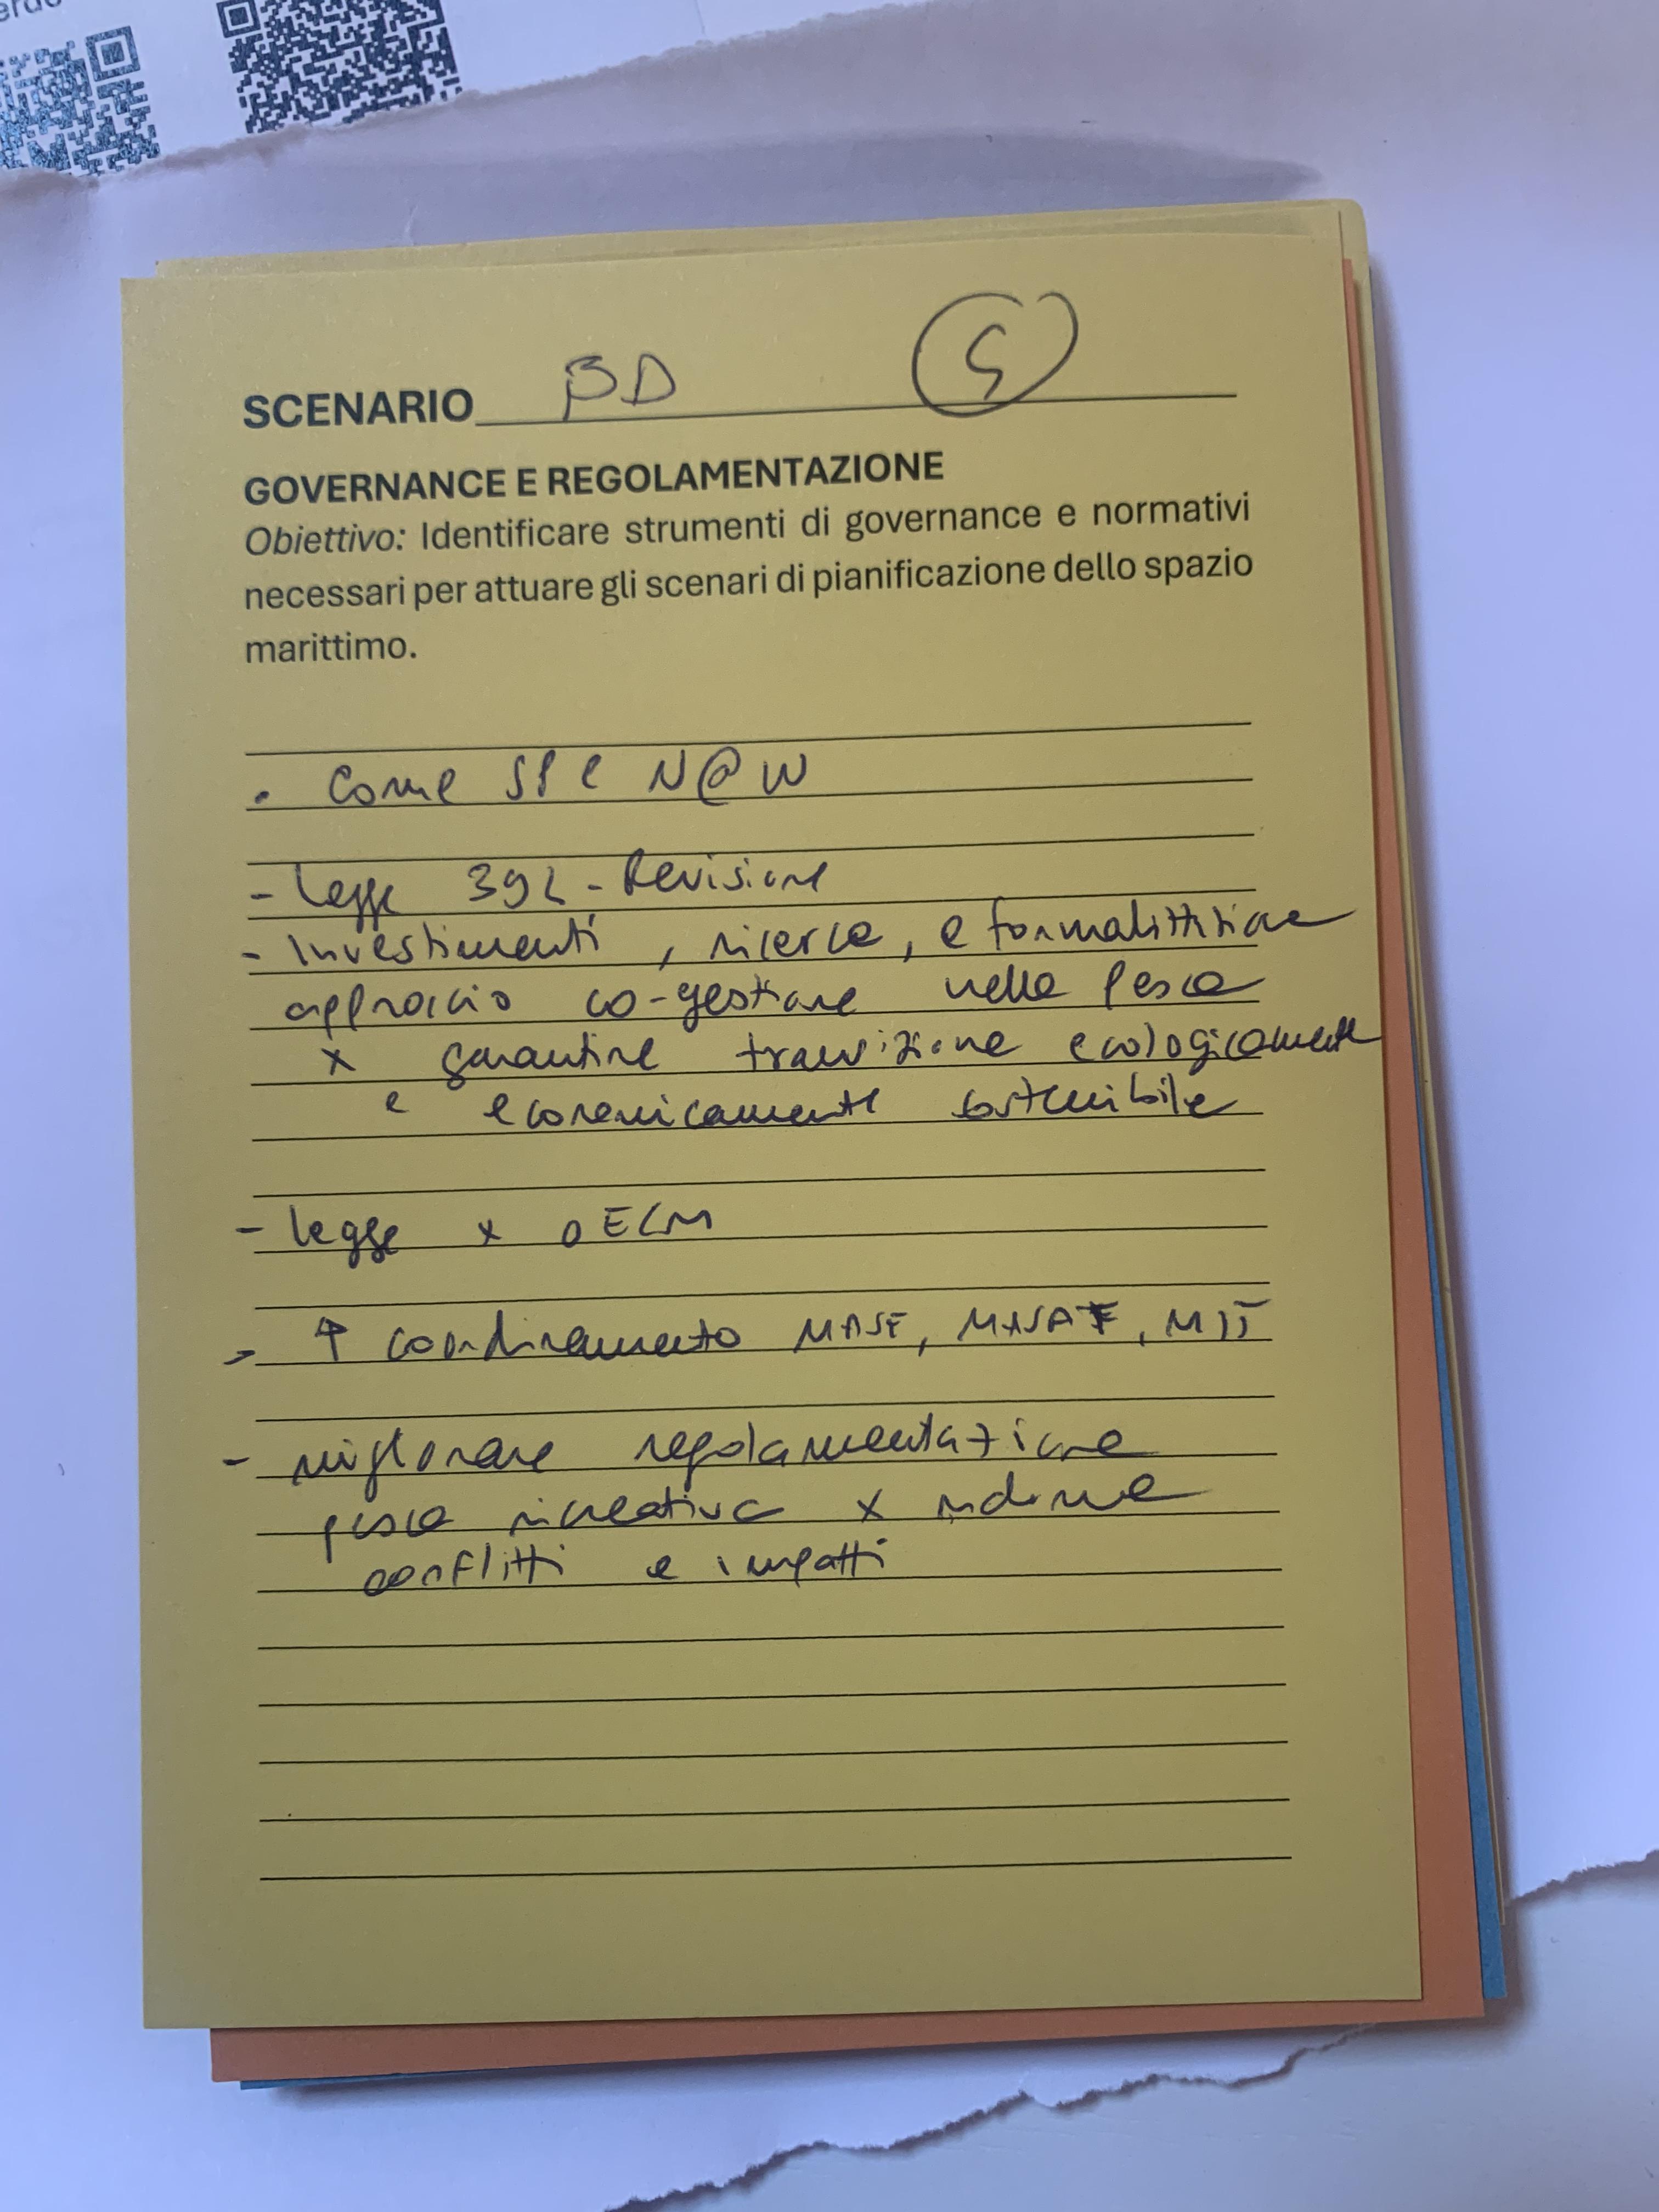 SCENARIO BD
GOVERNANCE E REGOLAMENTAZIONE
Obiettivo: Identificare strumenti di governance e normativi
necessari per attuare gli scenari di pianificazione dello spazio
marittimo.
• Come SP e N@W
- Legge 392 - Revisione
- Investimenti, ricerca, e formalizzazione
approccio co-gestione nella pesca
x garantire transizione ecologicamente
e economicamente sostenibile
- legge x OECM
- ↑ coordinamento MASE, MASAF, MIT
- migliorare regolamentazione
pesca ricreativa x ridurre
conflitti e impatti